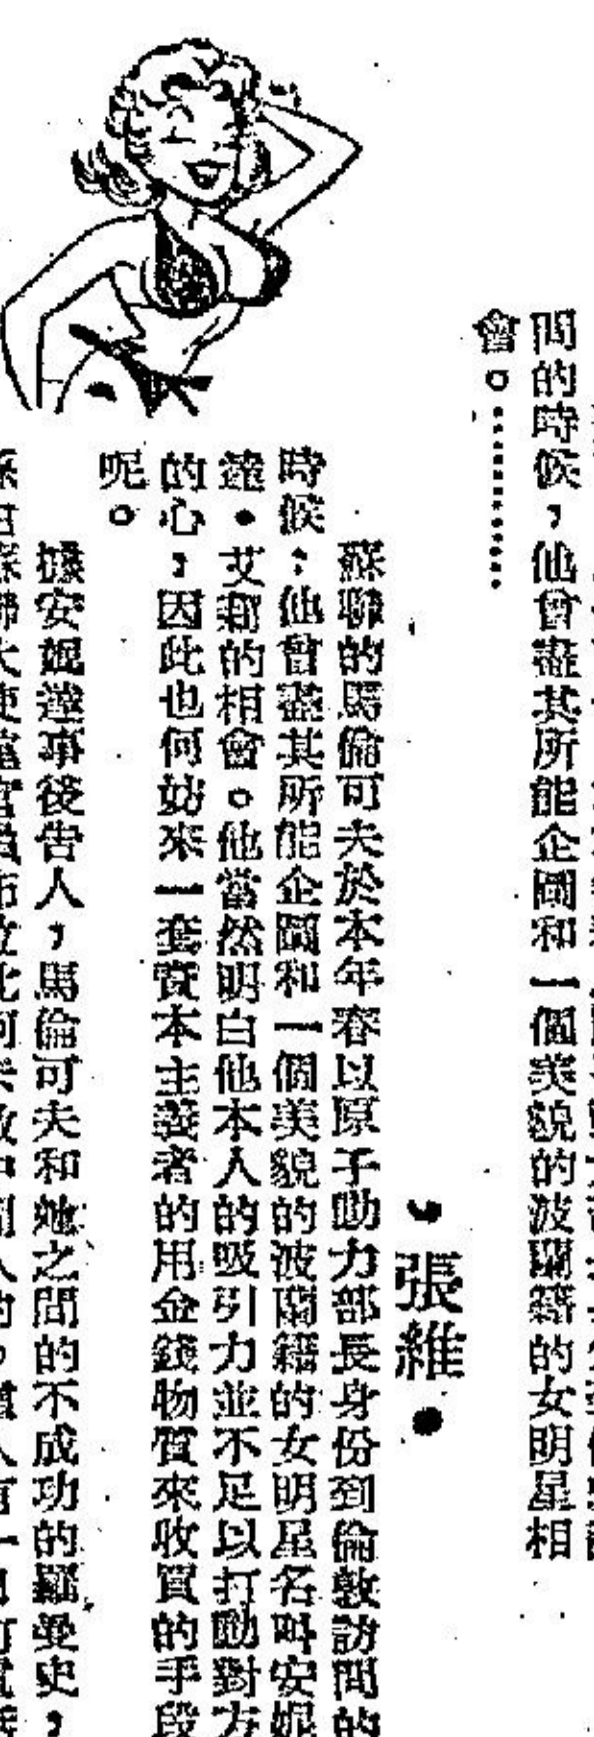 問的時候，他曾盡其所能企圖和一個美貌的波蘭籍的女明星相
會。…………
•張維•
蘇聯的馬倫可夫於本年春以原子動力部長身份到倫敦訪問的
時候，他曾盡其所能企圖和一個美貌的波蘭籍的女明星名叫安妮
達•艾霜的相會。他當然明白他本人的吸引力並不足以打動對方
的心，因此也何妨來一套資本主義者的用金錢物質來收買的手段
呢。
據安妮達事後告人，馬倫可夫和她之間的不成功的羅曼史，